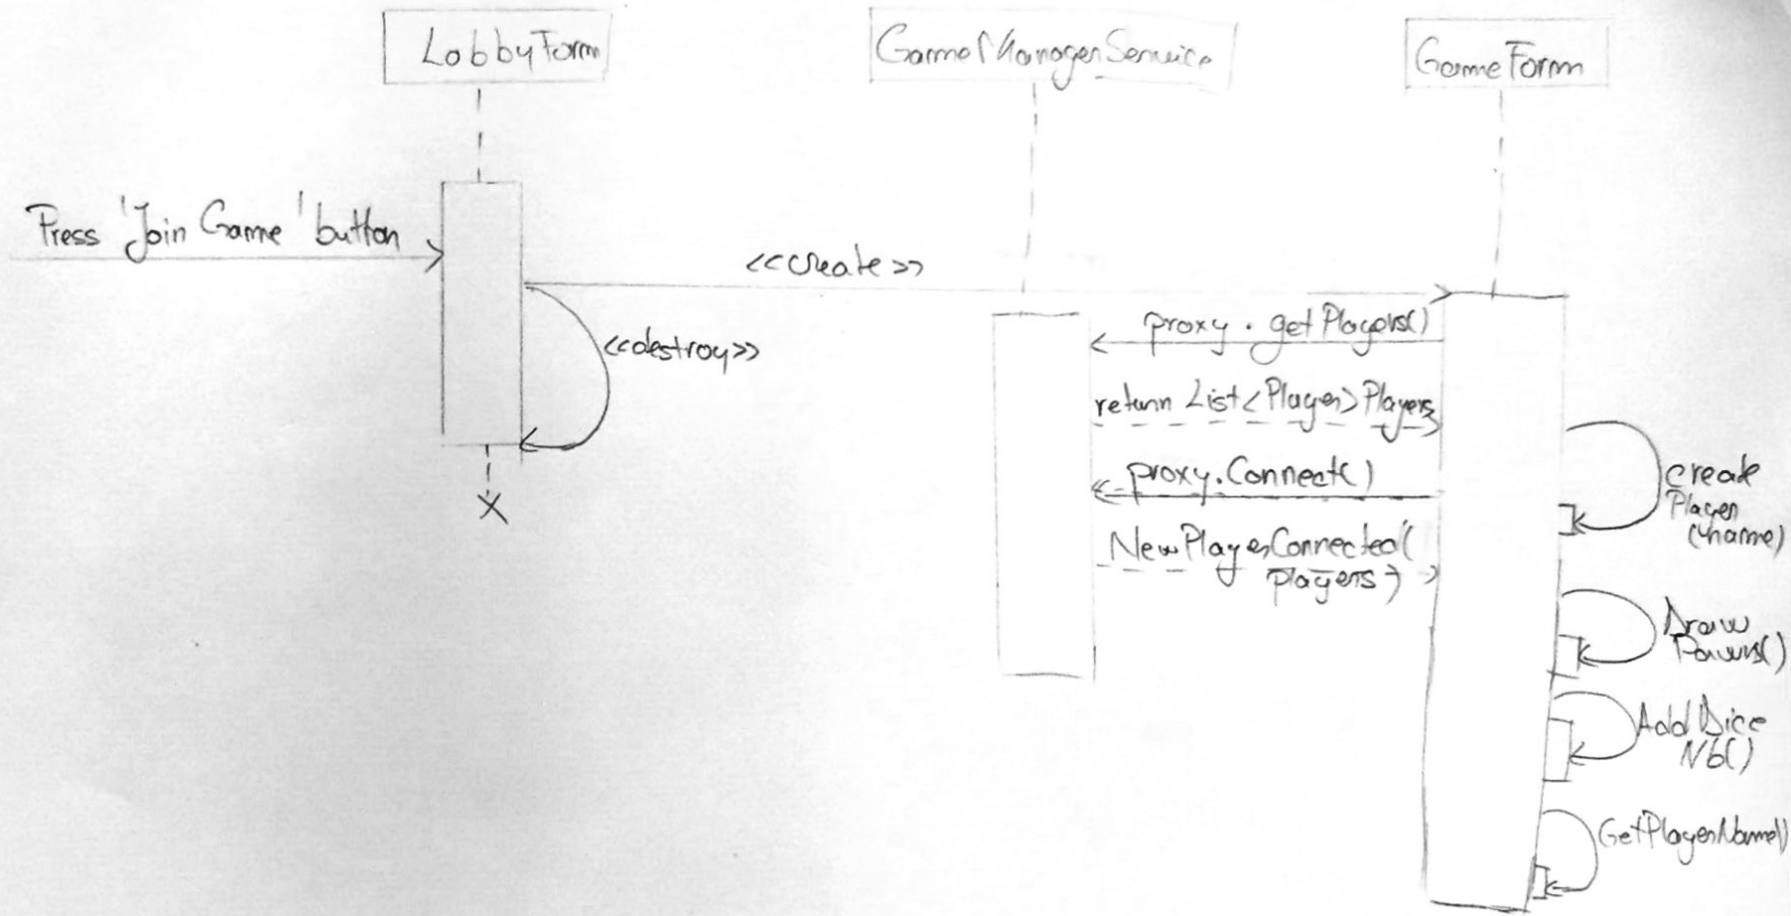 LobbyForm
GameManagerService
GameForm
Press 'Join Game' button
<<create>>
<<destroy>>
proxy.getPlayers()
return List<Player>Players
proxy.Connect()
NewPlayerConnected(
players)
create
Player
(name)
Draw
Pawns()
Add Dice
Nb()
GetPlayerName()